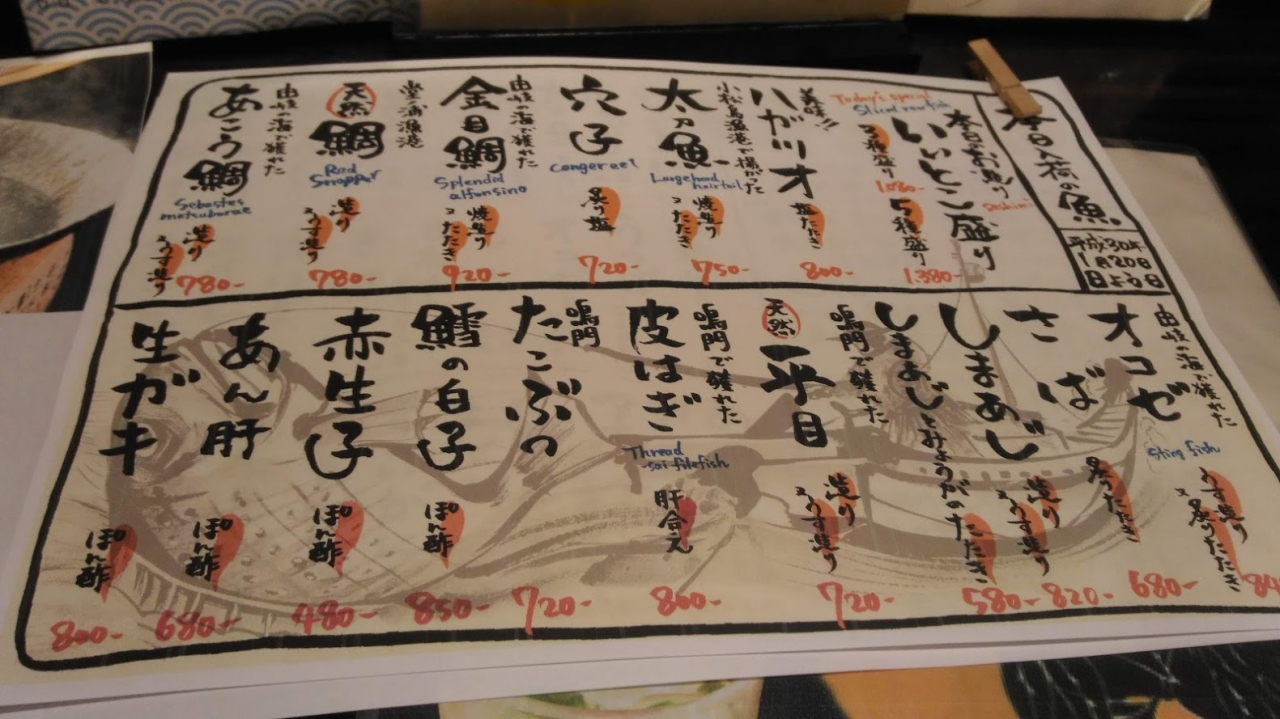 本日入荷の魚
平成30年
1月20日
日よう日
Today's special
Sliced raw fish
本日のお造り
sashimi
いいとこ盛り
3種盛り
1.080-
5種盛り
1.380-
美味!!
ハガツオ
塩たたき
800-
小松島漁港で揚がった
太刀魚
Largehead hairtail
焼造り
又たたき
750-
穴子
Conger eel
炙り塩
720-
由岐の海で獲れた
金目鯛
Splendid
alfonsino
焼造り
又たたき
920-
堂の浦漁港
天然
鯛
Red
Snapper
造り
又うす造り
780-
由岐の海で獲れた
あこう鯛
Sebastes
matsubarae
造り
又うす造り
780-
由岐の海で獲れた
オコゼ
Sting fish
うす造り
又炙りたたき
さば
炙りたたき
680-
しまあじ
造り
又うす造り
820-
しまあじとみょうがのたたき
580-
鳴門で獲れた
天然
平目
造り
又うす造り
720-
鳴門で獲れた
皮はぎ
Thread
-sail filefish
肝合え
800-
鳴門
たこぶつ
720-
鱈の白子
ぽん酢
850-
赤生子
ぽん酢
480-
あん肝
ぽん酢
680-
生ガキ
ぽん酢
800-